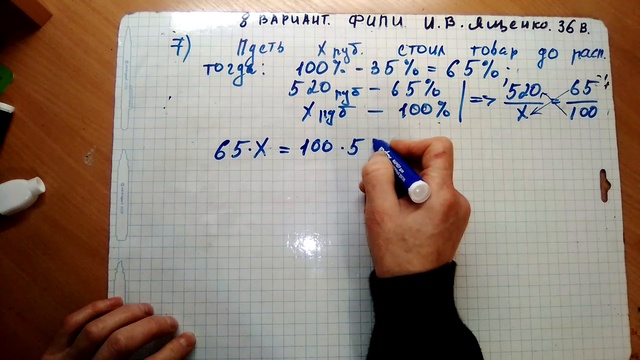 8 ВАРИАНТ. ФИПИ. И.В. Ященко. 36 в.
7) Пусть х руб. стоил товар до расп.
тогда: 100% - 35% = 65%.
520 руб - 65%
х руб - 100% | => 520/х = 65/100
65·х = 100·5